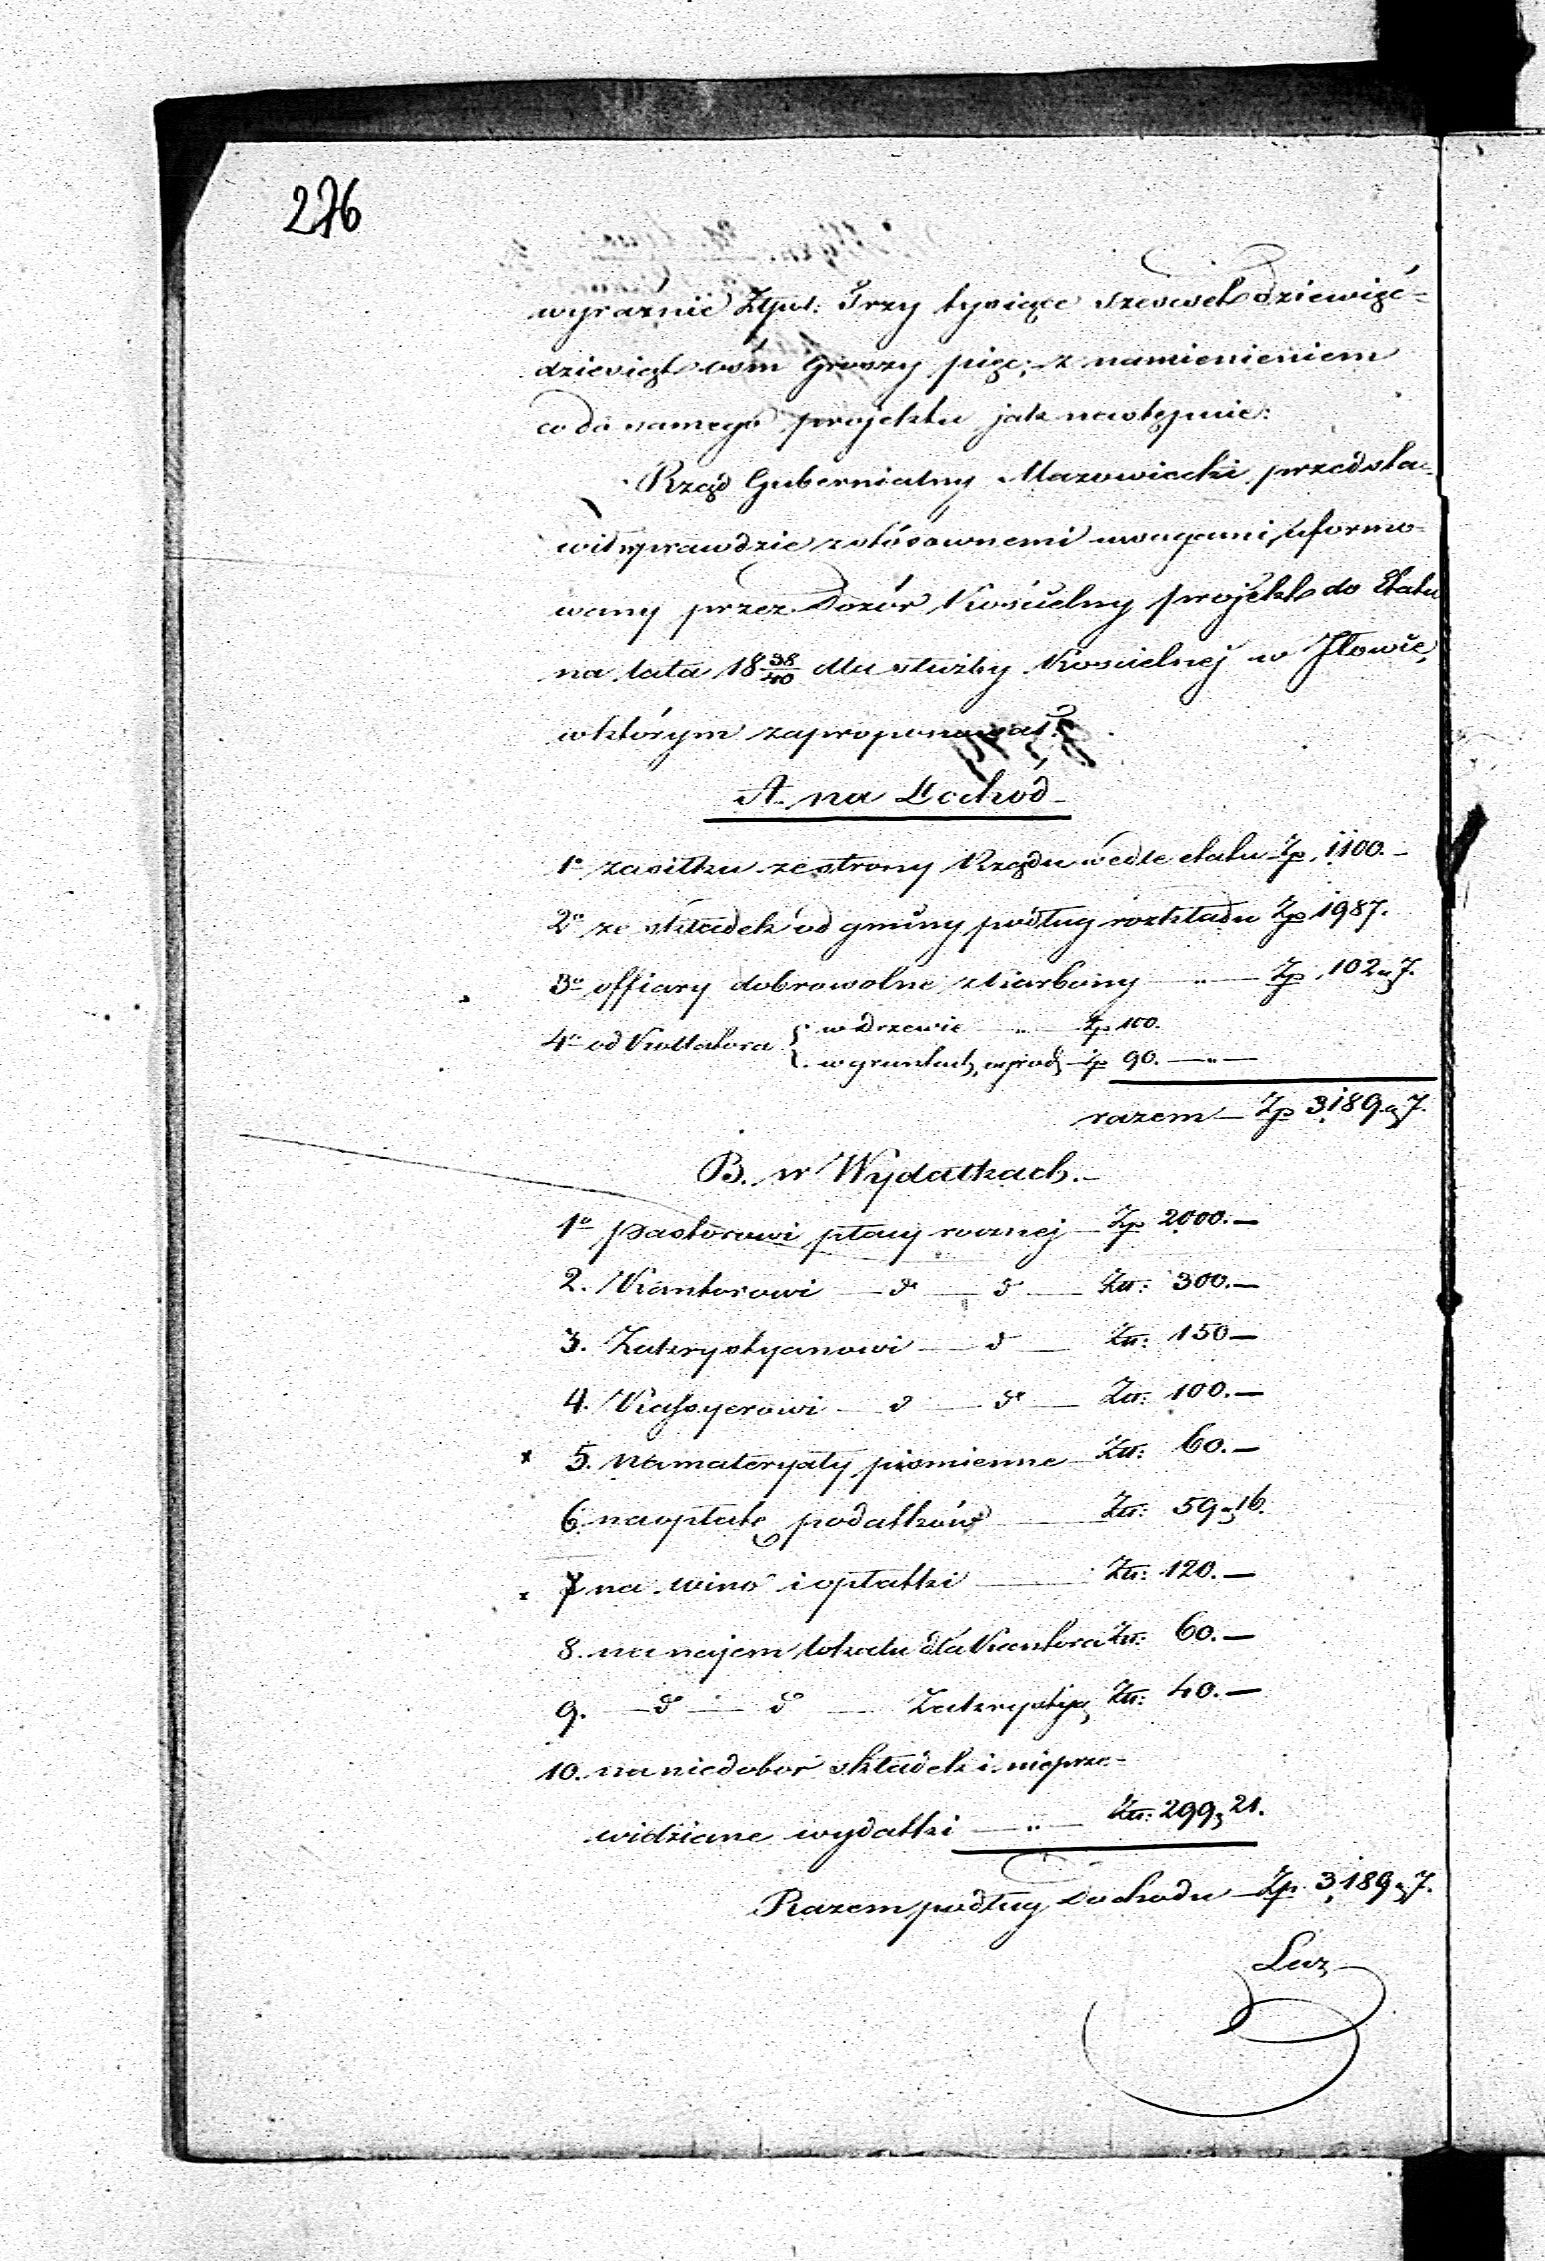 276
wyraźnie Złpol: Trzy tysiące sześćset dziewięć-
dziesiąt ośm groszy pięć; z namienieniem
co do samego projektu jak następnie:
Rząd Gubernialny Mazowiecki przedsta-
wił wprawdzie z stósownemi uwagami, uformo-
wany przez Dozór Kościelny projekt do Etatu
na lata 18 38/40 dla służby Kościelnéj w Iłowie,
w którym zaproponował:
A. na Dochód
1o zasiłku ze strony Rządu wedle etatu Zp. 1100.—
2o ze składek od gminy podług rozkładu Zp 1987.
3o offiary dobrowolne z karbony — „ — Zp. 102 g 7.
4o od Kollatora { w drzewie „ Zp 100.
w gruntach, ogrod Zp 90. — „ —
razem — Zp 3,189 g 7.
B. w Wydatkach.—
1o Pastorowi płacy rocznej — Zp 2000.—
2. Kantorowi — do — do — Zł: 300.—
3. Zakrystyanowi — do — Zł: 150—
4. Kassyerowi — do — do — Zł: 100.—
x 5. na materyały piśmienne — Zł: 60.—
6. na opłatę podatków — Zł: 59 g 16.
x 7 na wino i opłatki — Zł: 120.—
8. na najem lokalu dla Kantora Zł: 60.—
9. — do — do — Zakrystya Zł: 40.—
10. na niedobór składek i nieprze-
widziane wydatki — „ — Zł: 299 g 21.
Razem podług Dochodu — Zp. 3,189 g 7.
Lecz